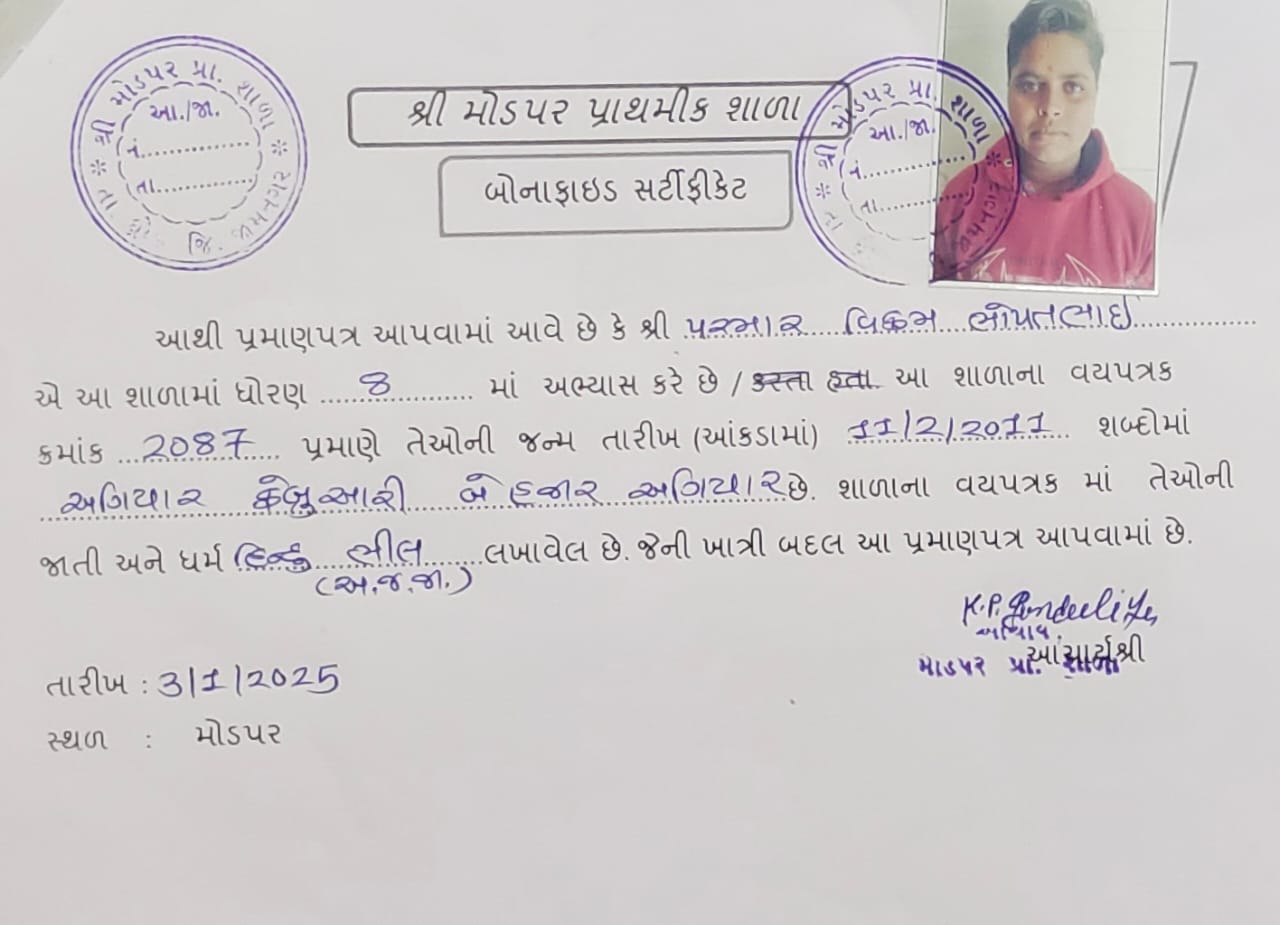 શ્રી મોડપર પ્રા. શાળા
આ./જા.
નં.
તા.
જિ. જામનગર
શ્રી મોડપર પ્રાથમીક શાળા
બોનાફાઇડ સર્ટીફીકેટ
શ્રી મોડપર પ્રા. શાળા
આ./જા.
નં.
તા.
જામનગર
આથી પ્રમાણપત્ર આપવામાં આવે છે કે શ્રી પરમાર વિક્રમ
એ આ શાળામાં ધોરણ 8 માં અભ્યાસ કરે છે / કરતા હતા આ શાળાના વયપત્રક
ક્રમાંક 2087 પ્રમાણે તેઓની જન્મ તારીખ (આંકડામાં) 11/2/2011 શબ્દોમાં
અગિયાર ફેબ્રુઆરી બે હજાર અગિયાર છે. શાળાના વયપત્રક માં તેઓની
જાતી અને ધર્મ હિન્દુ ભીલ લખાવેલ છે. જેની ખાત્રી બદલ આ પ્રમાણપત્ર આપવામાં છે.
(અ.જ.જા.)
K.P.
આચાર્ય
આચાર્યશ્રી
મોડપર પ્રા. શાળા
તારીખ : 3/1/2025
સ્થળ : મોડપર